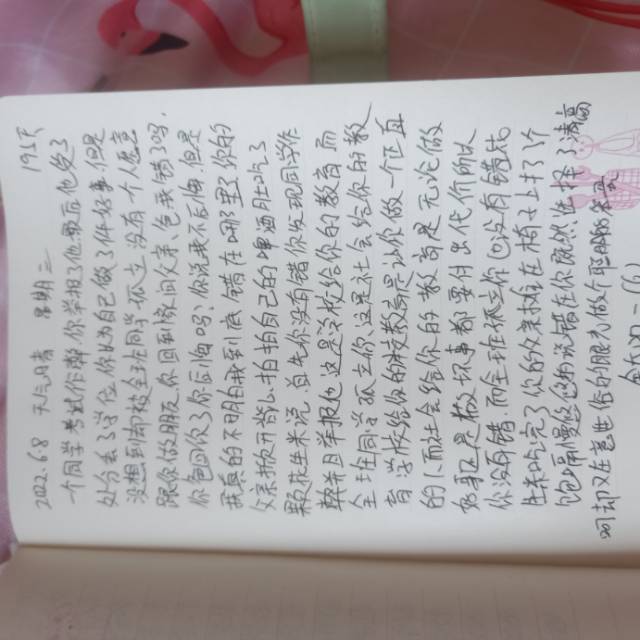 2022.6.8 天气晴 星期三 19:57
一个同学考试作弊你举报了他.最后他受了
处分丢了学位你以为自己做了件好事.但是
没想到却被全班同学孤立.没有一个人愿意
跟你做朋友.你回到家问父亲、爸我错了吗.
你爸回你了你后悔吗.你说我不后悔.但是
我真的不明白我到底错在哪里了你的
父亲掀开背心拍拍自己的啤酒肚吃了
颗花生米说.首先你没有错你发现同学作
弊并且举报他这是学校给你的教育而
全班同学孤立你.这是社会给你的教
育学校给你的教育是让你做一个正直
的人而社会给你的教育是无论做
好事还是做坏事都要付出代价所以
你没有错.而全班孤立你也没有错花
生米吃完了你的父亲摊在椅子上打了个
饱嗝慢悠悠的说错在你既然选择了清高